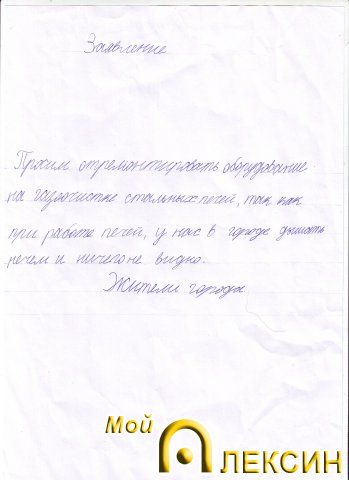 Заявление
Просим отремонтировать оборудование
на газоочистке стальных печей, так как
при работе печей, у нас в городе дышать
нечем и ничего не видно.
Жители города
Мой
Алексин